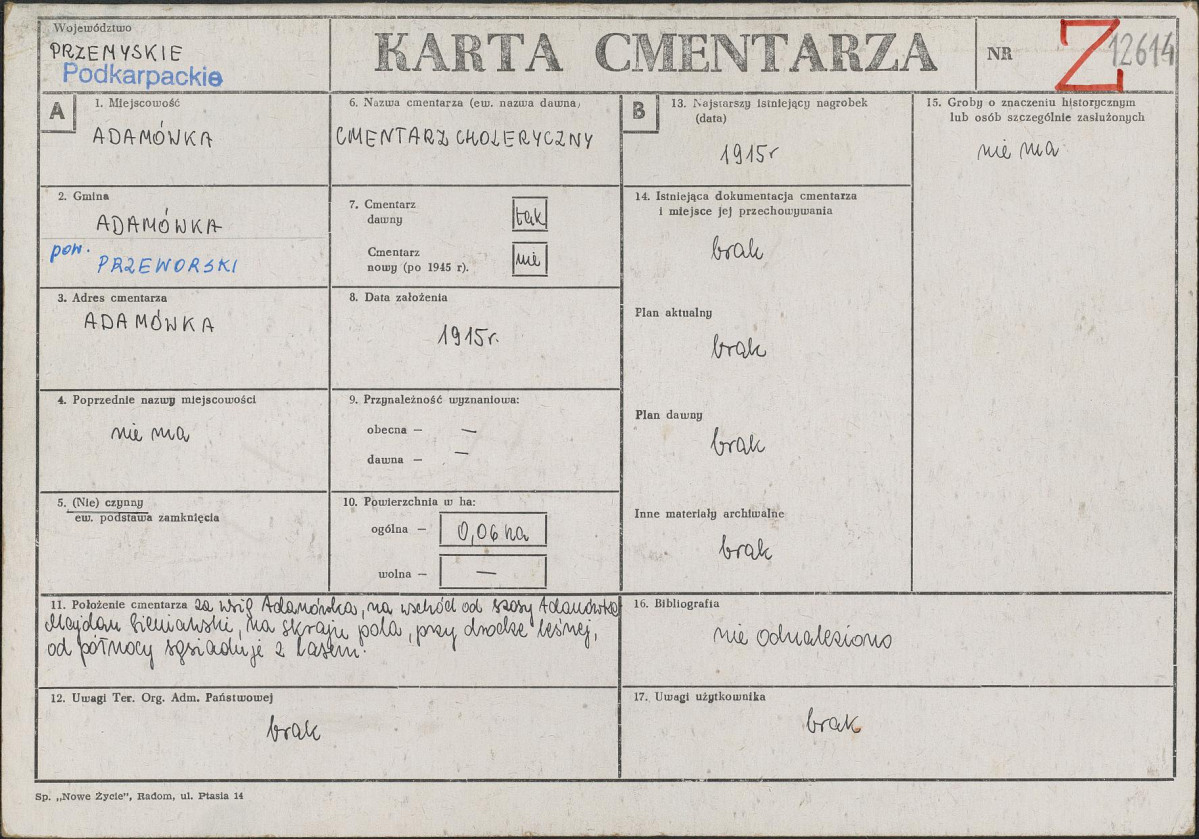 Województwo
PRZEMYSKIE
Podkarpackie
KARTA CMENTARZA
NR
Z 12614
A
1. Miejscowość
ADAMÓWKA
2. Gmina
ADAMÓWKA
pow.
PRZEWORSKI
3. Adres cmentarza
ADAMÓWKA
4. Poprzednie nazwy miejscowości
nie ma
5. (Nie) czynny
ew. podstawa zamknięcia
6. Nazwa cmentarza (ew. nazwa dawna)
CMENTARZ CHOLERYCZNY
7. Cmentarz
dawny
tak
Cmentarz
nowy (po 1945 r).
nie
8. Data założenia
1915r.
9. Przynależność wyznaniowa:
obecna — —
dawna — —
10. Powierzchnia w ha:
ogólna — 0,06 ha
wolna — —
B
13. Najstarszy istniejący nagrobek
(data)
1915r
14. Istniejąca dokumentacja cmentarza
i miejsce jej przechowywania
brak
Plan aktualny
brak
Plan dawny
brak
Inne materiały archiwalne
brak
15. Groby o znaczeniu historycznym
lub osób szczególnie zasłużonych
nie ma
11. Położenie cmentarza za wsią Adamówka, na wschód od szosy Adamówka
Majdan Sieniawski, na skraju pola, przy drodze leśnej,
od północy sąsiaduje z lasem.
16. Bibliografia
nie odnaleziono
12. Uwagi Ter. Org. Adm. Państwowej
brak
17. Uwagi użytkownika
brak
Sp. „Nowe Życie”, Radom, ul. Ptasia 14